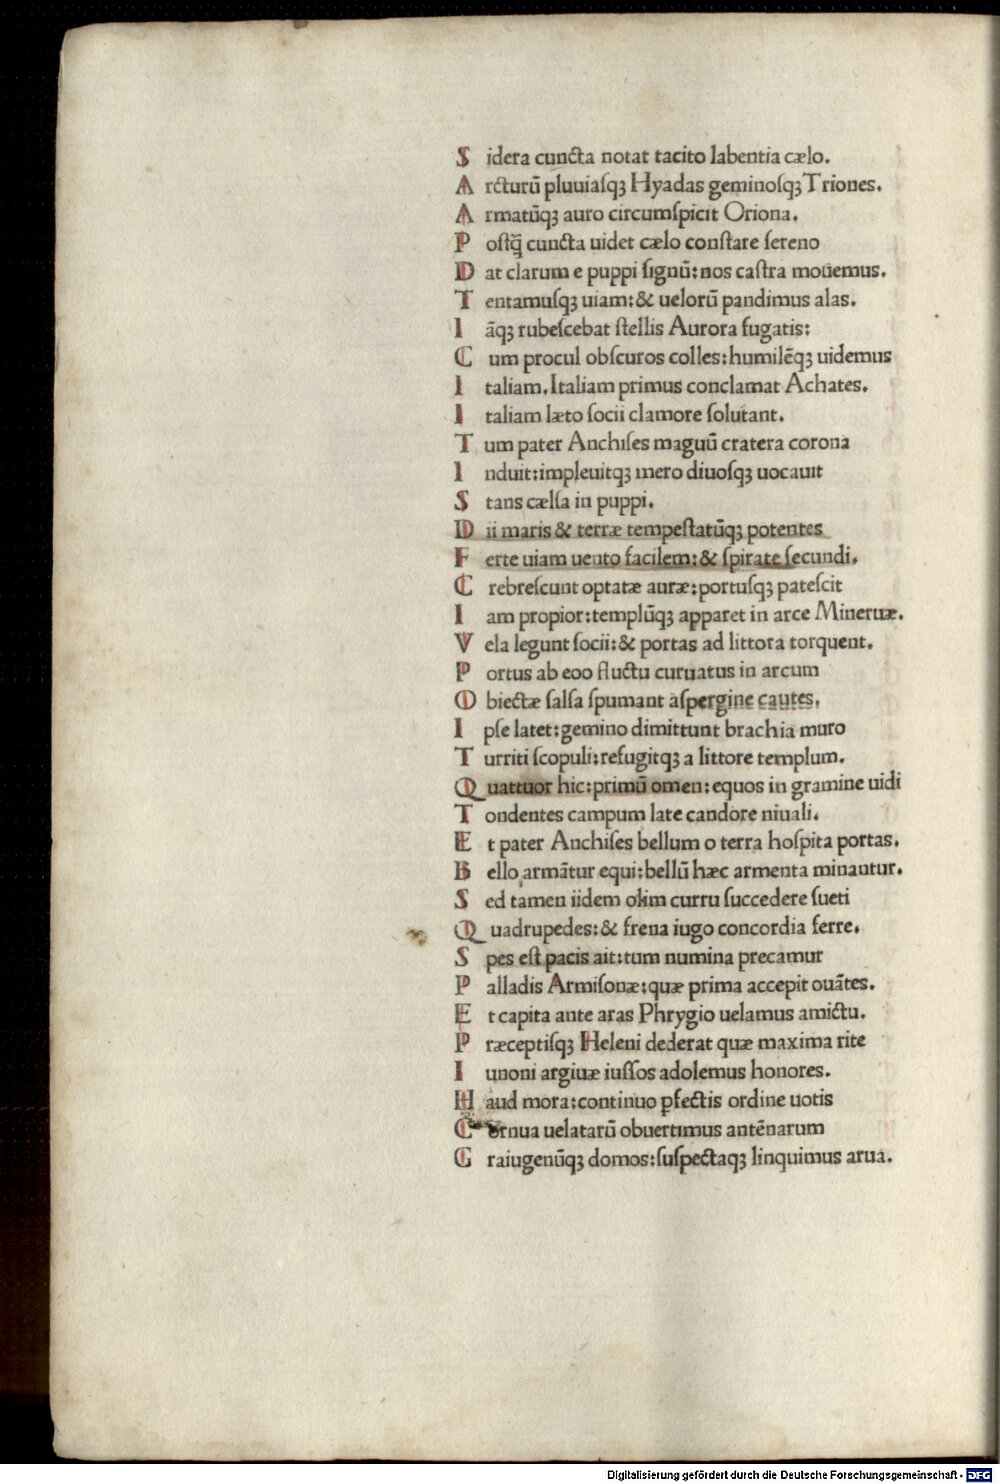 S idera cuncta notat tacito labentia cælo.
A rcturū pluuiaſqꝫ Hyadas geminoſqꝫ Triones.
A rmatūqꝫ auro circumſpicit Oriona.
P oſtꝗ̄ cuncta uidet cælo conſtare ſereno
D at clarum e puppi ſignū: nos caſtra mouemus.
T entamuſqꝫ uiam: & uelorū pandimus alas.
I āqꝫ rubeſcebat ſtellis Aurora fugatis:
C um procul obſcuros colles: humilēqꝫ uidemus
I taliam. Italiam primus conclamat Achates.
I taliam læto ſocii clamore ſolutant.
T um pater Anchiſes maguū cratera corona
I nduit: impleuitqꝫ mero diuoſqꝫ uocauit
S tans cælſa in puppi.
D ii maris & terræ tempeſtatūqꝫ potentes
F erte uiam uento facilem: & ſpirate ſecundi.
C rebreſcunt optatæ auræ: portuſqꝫ pateſcit
I am propior: templūqꝫ apparet in arce Mineruæ.
V ela legunt ſocii: & portas ad littora torquent.
P ortus ab eoo fluctu curuatus in arcum
O biectæ ſalſa ſpumant aſpergine cautes.
I pſe latet: gemino dimittunt brachia muro
T urriti ſcopuli: refugitqꝫ a littore templum.
Q uattuor hic: primū omen: equos in gramine uidi
T ondentes campum late candore niuali.
E t pater Anchiſes bellum o terra hoſpita portas.
B ello armātur equi: bellū hæc armenta minantur.
S ed tamen iidem olim curru ſuccedere ſueti
Q uadrupedes: & frena iugo concordia ferre.
S pes eſt pacis ait: tum numina precamur
P alladis Armiſonæ: quæ prima accepit ouātes.
E t capita ante aras Phrygio uelamus amictu.
P ræceptiſqꝫ Heleni dederat quæ maxima rite
I unoni argiuæ iuſſos adolemus honores.
H aud mora: continuo ꝑfectis ordine uotis
C ornua uelatarū obuertimus antēnarum
G raiugenūqꝫ domos: ſuſpectaqꝫ linquimus arua.
Digitalisierung gefördert durch die Deutsche Forschungsgemeinschaft - DFG